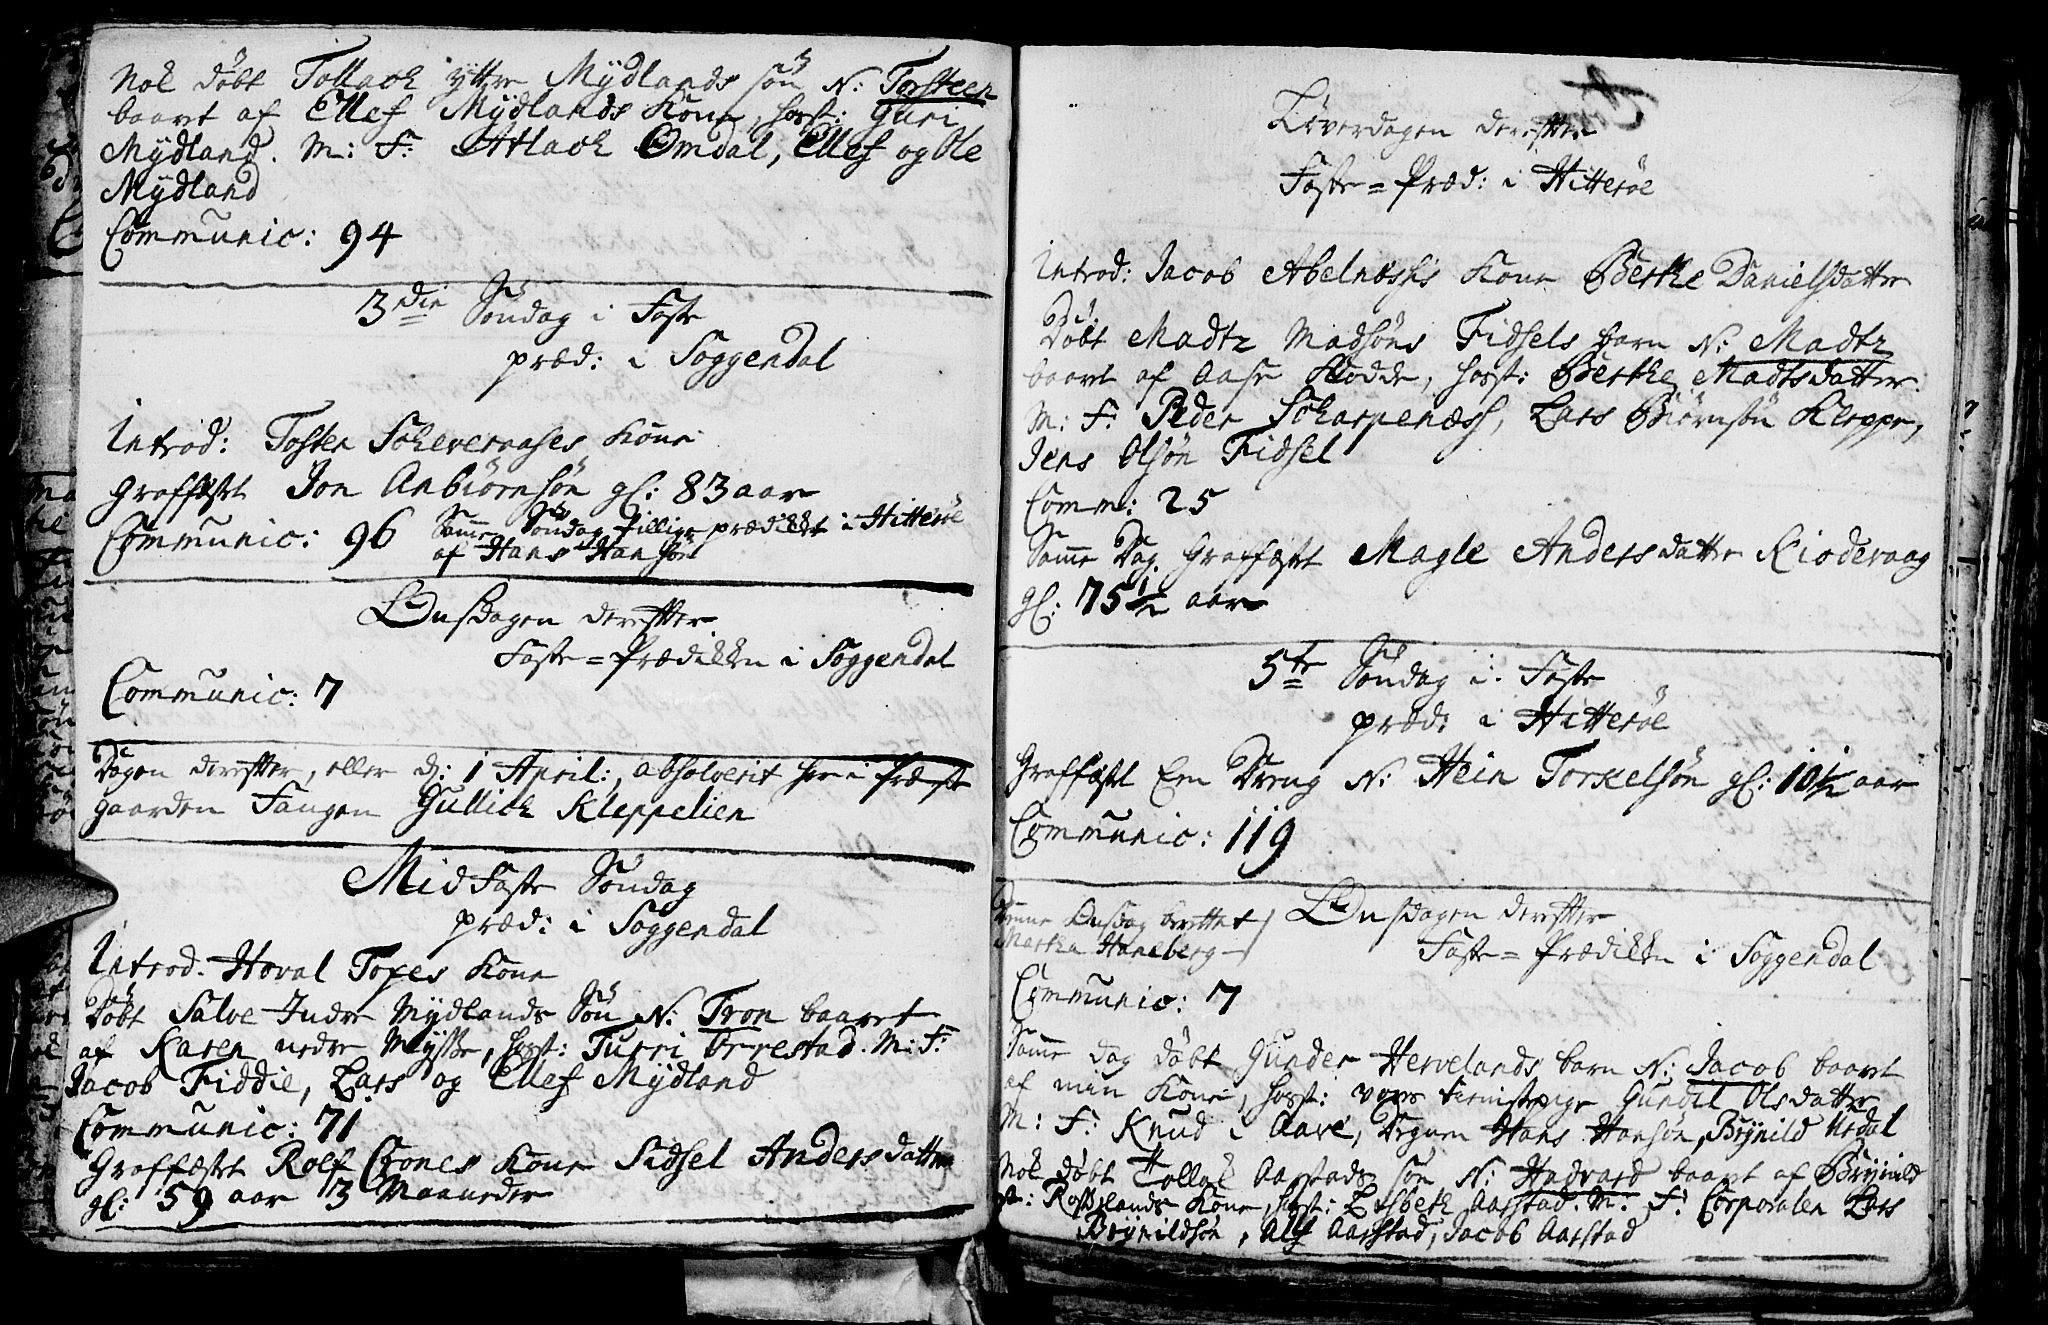 Nok døbt Tollach ÿttre Mÿdlands søn N: Torsteen
baaret af Ellef Mÿdlands Kone, host: Guri
Mÿdland. M: F: Atlach Omdal, Ellef og Ole
Mÿdland
Communic: 94
3die Søndag i Faste
præd: i Soggendal
Introd: Tosten Scheveraases Kone
Graffæstet Jon Anbiörnsön gl: 83 aar
Communic: 96
Samme Søndag tillige prædiket i Hitterøe
af Hans Hansøn
Onsdagen derefter
Faste=Prædiken i Soggendal
Communic: 7
Dagen derefter, eller d: 1 April:, absolverit her i Præste
gaarden Fangen Gullich Kleppelien
MidFaste Søndag
præd: i Soggendal
Introd. Hoval Toges Kone
Døbt Salve Indre Mÿdlands Søn N: Tron baaret
af Karen nedre Mÿsse, host: Turri Orrestad. M: F:
Jacob Fiddie, Lars og Ellef Mÿdland
Communic: 71
Graffæstet Rolf Erones Kone Sidsel Andersdatter
gl: 59 aar 3 Maaneder
Løverdagen derefter
Faste=Præd: i Hitterøe
Introd: Jacob Abelnæsses Kone Berthe Danielsdatter
Døbt Madtz Madsøns Fidsels barn N: Madtz
baaret af Aase Rodde, host: Berthe Madtsdatter.
M: F: Peder Scharpenæss, Lars Biørnsøn Kleppe,
Jens Olsøn Fidsel
Comm: 25
Samme Dag Graffæstet Magle Andersdatter Kioderaag
gl: 75 1/2 aar
5te Søndag i Faste
præd: i Hitterøe
Graffæstet Een Dreng N: Hein Torkelsøn gl: 10 1/2 aar
Communic: 119
Denne Onsdag berettet
Martha Haneberg
Onsdagen derefter
Faste=Prædiken i Soggendal
Communic: 7
Samme dag døbt Gunder Hervelands barn N: Jacob baaret
af min Kone, host: vores tienistepige Gundil Olsdatter
M: F: Knud i Aare, Degnen Hans Hansøn, Brÿnild Urdal
Nok døbt Tollag Aarstads søn N: Hadvard baaret af Brÿnild
Rosslands Kone, host: Lisbeth Aarstad. M: F: Corporalen Lars
Brÿnildsøn, Alf Aarstad, Jacob Aarstad